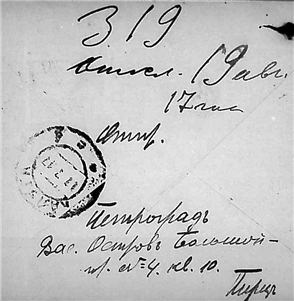 319
19 авг.
17 час
Отпр.
Петроградъ
Вас. Островъ Большой
пр. №4. кв. 10.